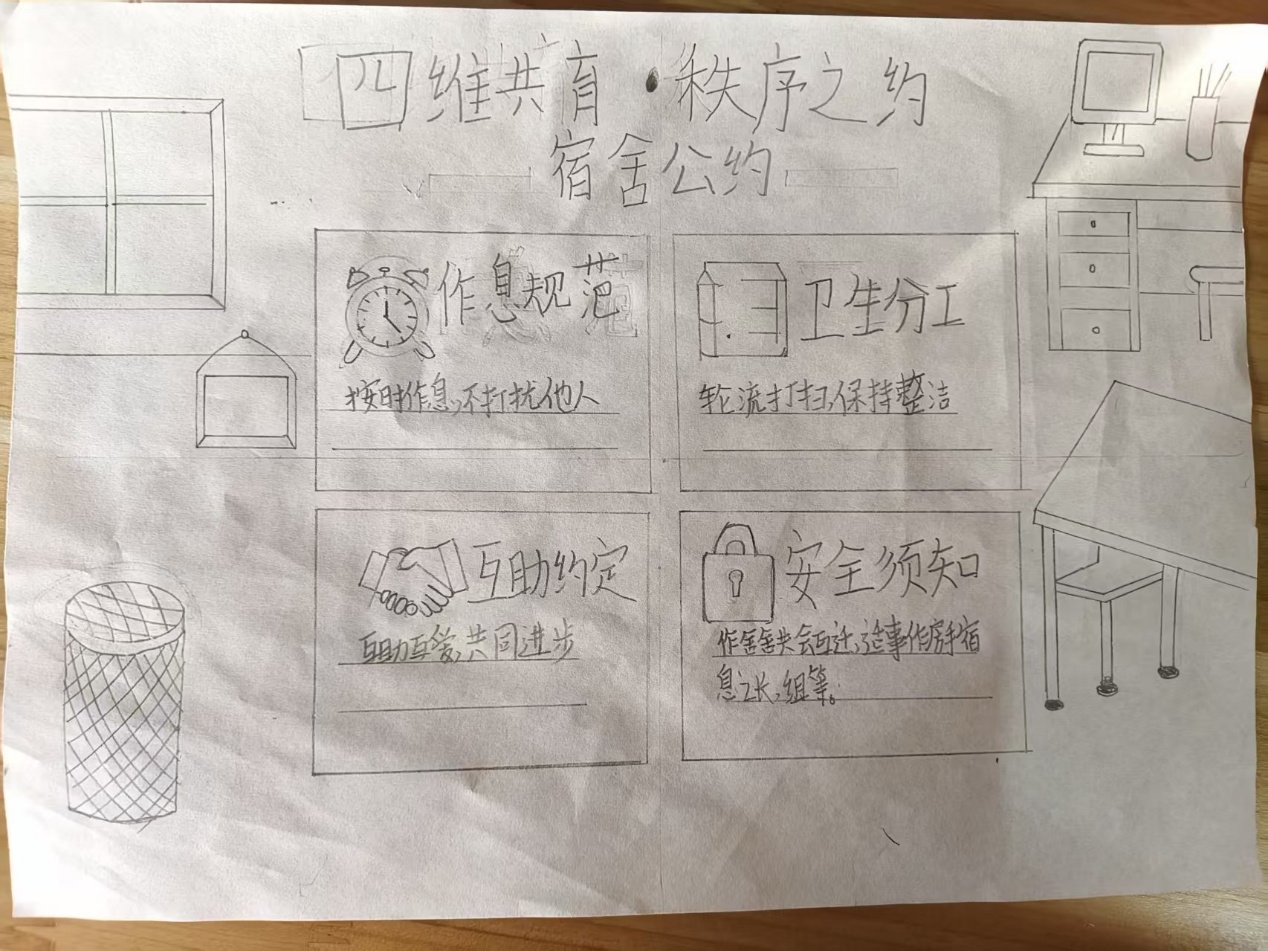 四维共育·秩序之约
宿舍公约
作息规范
按时作息，不打扰他人
卫生分工
轮流打扫，保持整洁
互助约定
互助互爱，共同进步
安全须知
作舍舍共会互迁，这事作房手宿
息之长，组等。